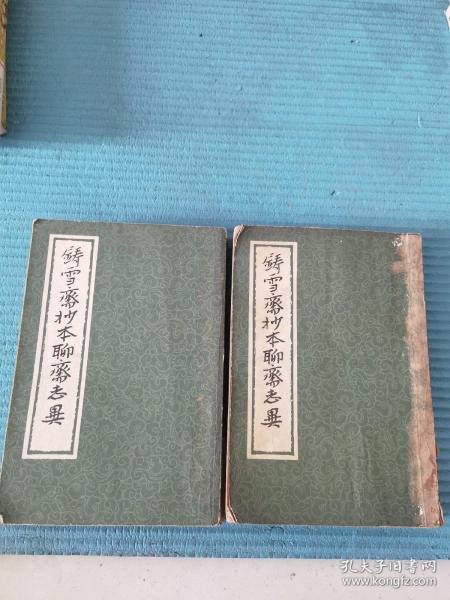 鑄雪齋抄本聊齋志異
鑄雪齋抄本聊齋志異
孔夫子旧书网
www.kongfz.com